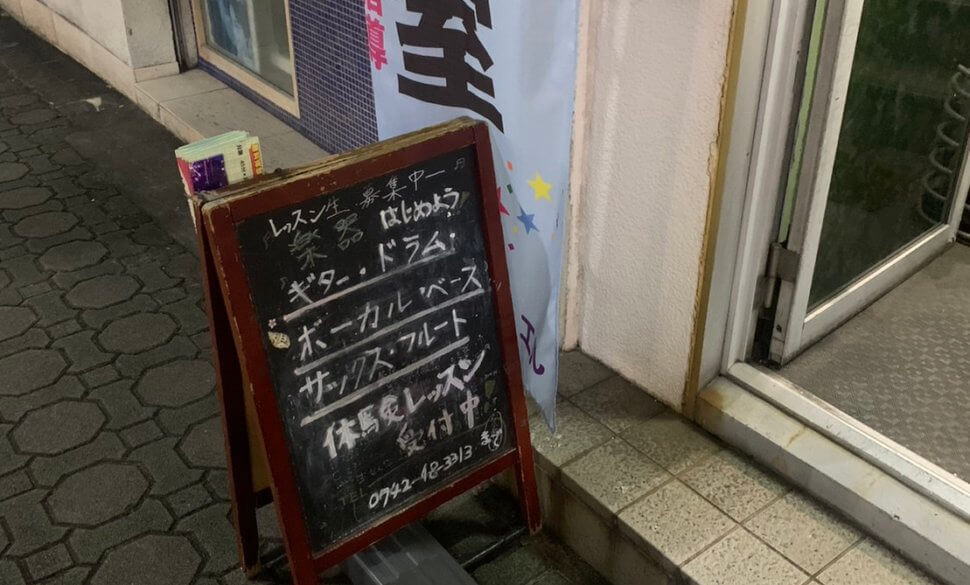 室
レッスン生 募集中
楽器 はじめよう
ギター・ドラム・
ボーカル・ベース
サックス・フルート
体験レッスン
受付中
0742-48-3313 まで